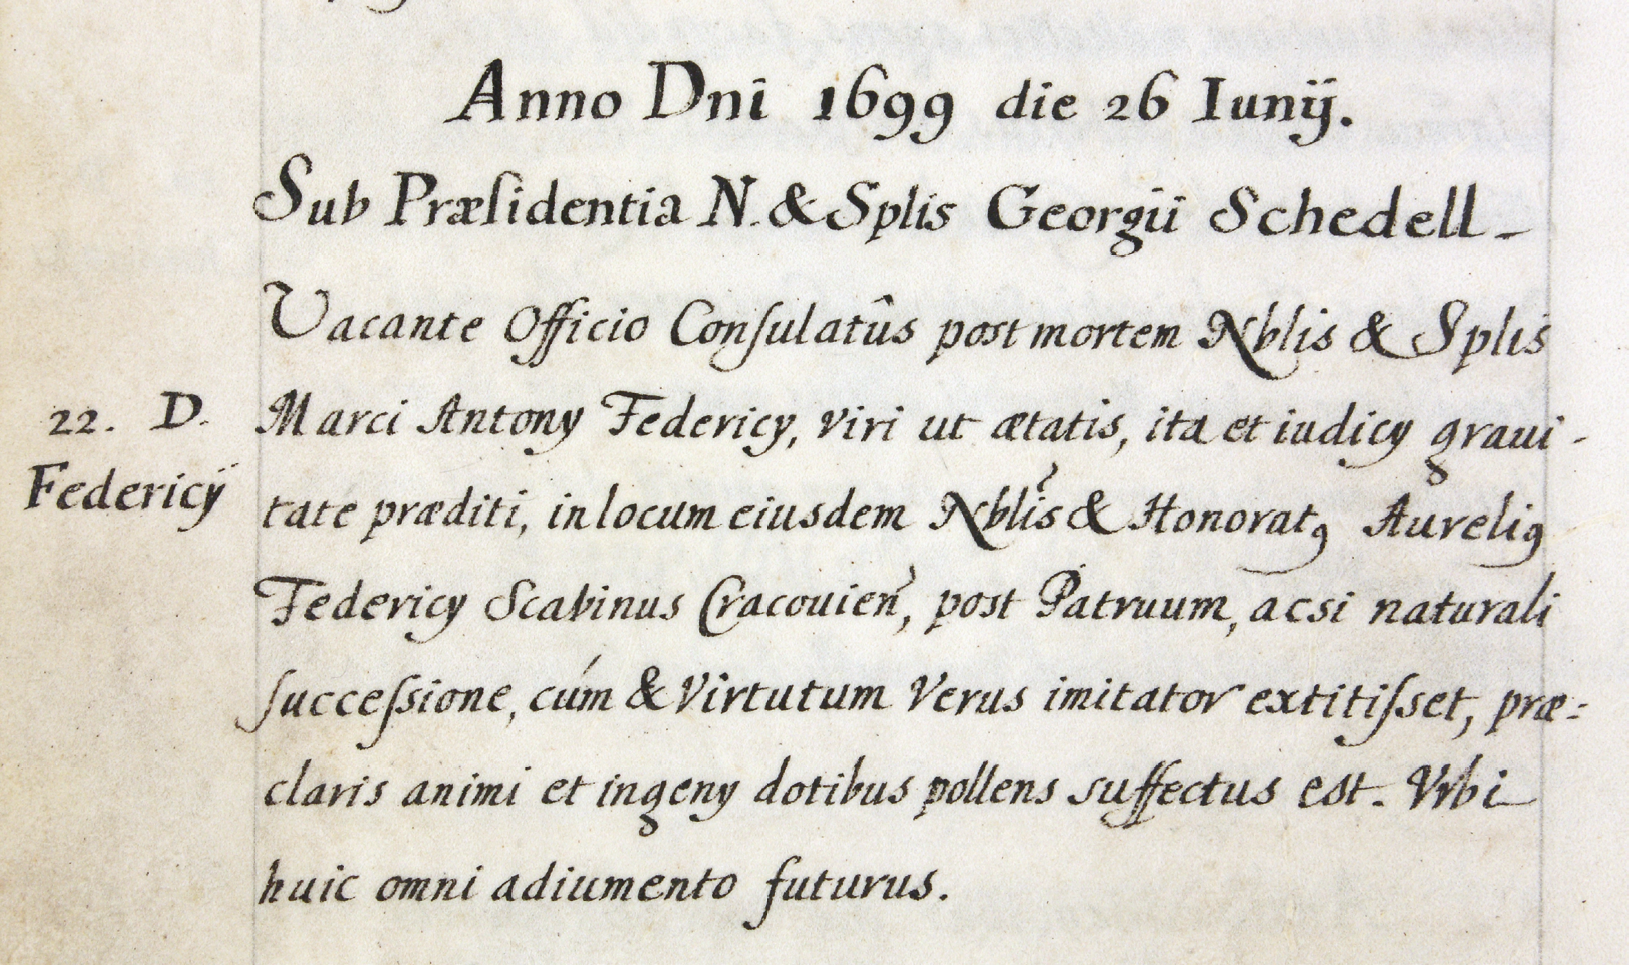 Anno Dni 1699 die 26 Iunij.
Sub Præſidentia N. & Splis Georgii Schedell -
Vacante Officio Conſulatûs post mortem Nblis & Splis
22. D. Marci Antony Federicy, viri ut ætatis, ita et iudicy graui-
Federicÿ tate præditi, in locum eiusdem Nblis & Honoratꝰ Aureliꝰ
Federicy Scabinus Cracouień, post Patruum, acsi naturali
ſucceſsione, cúm & Virtutum Verus imitator extitiſset, præ:
claris animi et ingeny dotibus pollens suffectus est. Vrbi
huic omni adiumento futurus.